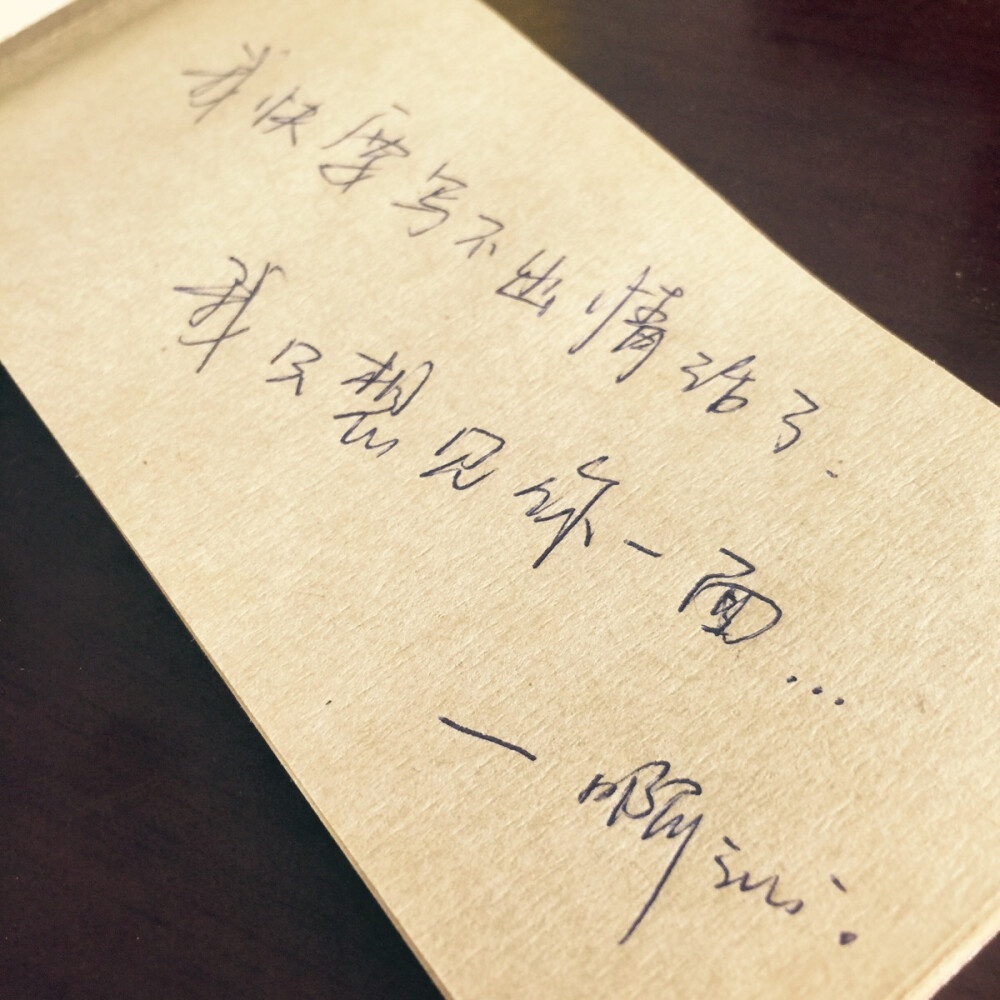 我快要写不出情话了.
我只想见你一面...
— 啊